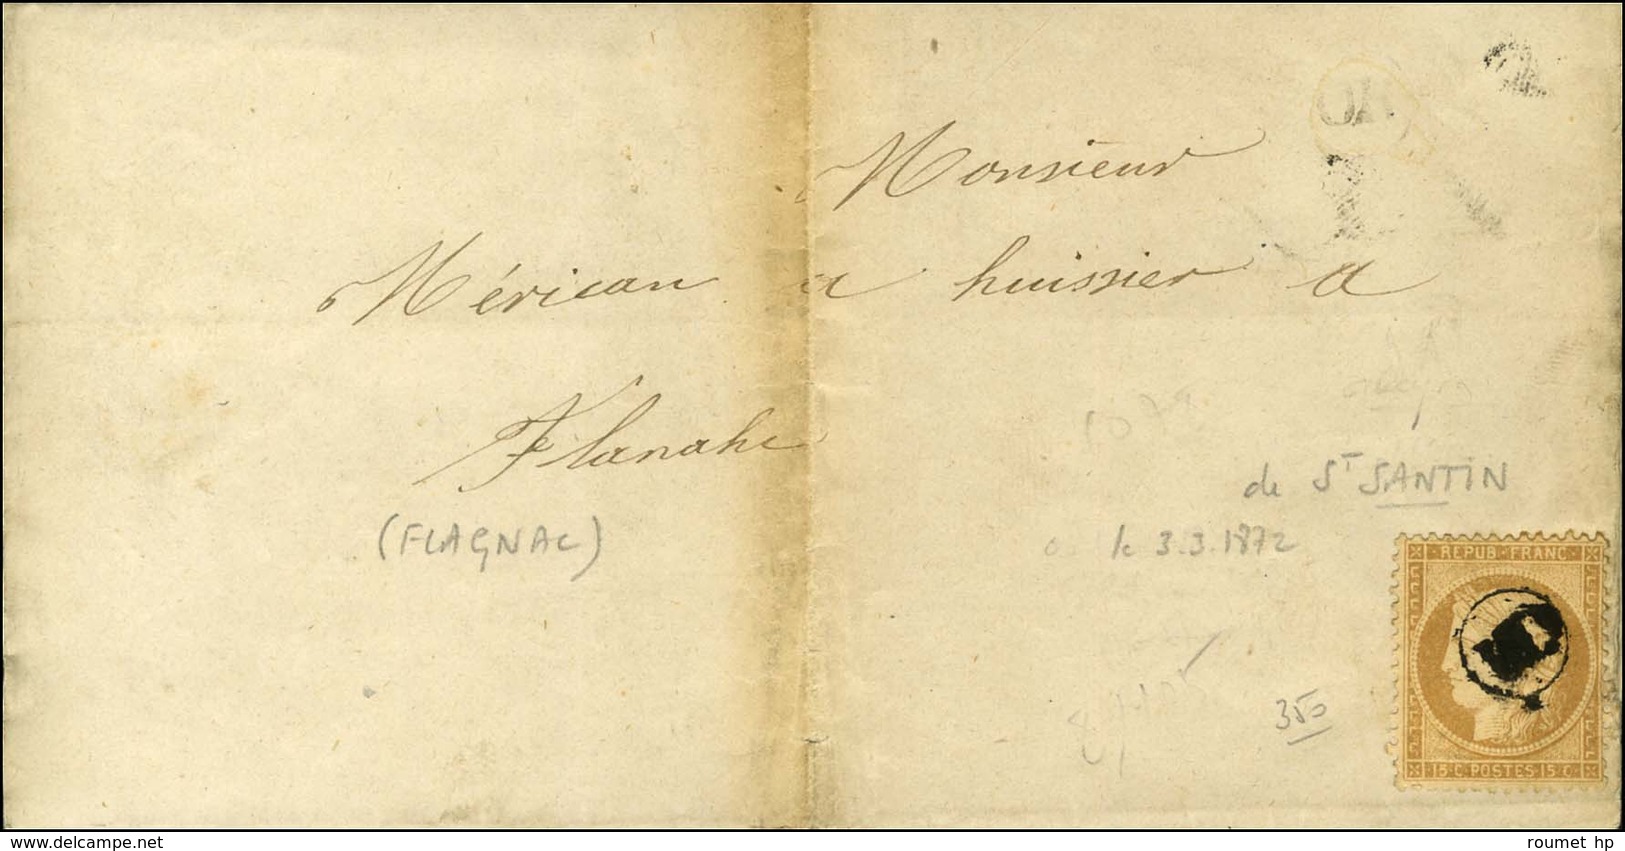 Monsieur
Mérican a huissier a
Flanahc
(FLAGNAC)
de ST SANTIN
le 3.3.1872
350
REPUB·FRANC
15·C·POSTES·15·C
delcampe.net
roumet hp